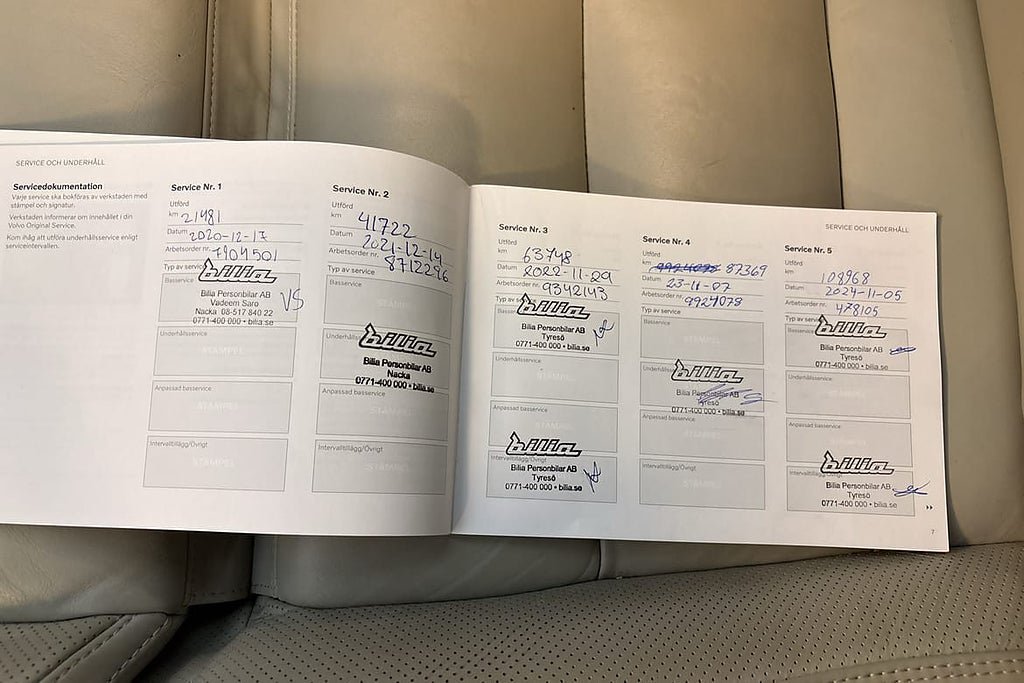 SERVICE OCH UNDERHÅLL
Servicedokumentation
Varje service ska bokföras av verkstaden med
stämpel och signatur.
Verkstaden informerar om innehållet i din
Volvo Original Service.
Kom ihåg att utföra underhållsservice enligt
serviceintervallen.
Service Nr. 1
Utförd
km 21481
Datum 2020-12-17
Arbetsorder nr. 7104501
Typ av service
Basservice
bilia
Bilia Personbilar AB
Vadeem Saro
Nacka 08-517 840 22
0771-400 000 • bilia.se
VS
Underhållsservice
STÄMPEL
Anpassad basservice
STÄMPEL
Intervalltillägg/Övrigt
STÄMPEL
Service Nr. 2
Utförd
km 41722
Datum 2021-12-14
Arbetsorder nr. 8712296
Typ av service
Basservice
STÄMPEL
Underhållsservice
bilia
Bilia Personbilar AB
Nacka
0771-400 000 • bilia.se
Anpassad basservice
STÄMPEL
Intervalltillägg/Övrigt
STÄMPEL
Service Nr. 3
Utförd
km 63748
Datum 2022-11-29
Arbetsorder nr. 9342143
Typ av
bilia
Bilia Personbilar AB
Tyresö
0771-400 000 • bilia.se
Underhållsservice
STÄMPEL
Anpassad basservice
bilia
Intervalltillägg/Övrigt
Bilia Personbilar AB
Tyresö
0771-400 000 • bilia.se
Service Nr. 4
Utförd
km 87369
Datum 23-11-07
Arbetsorder nr. 9927078
Typ av service
Basservice
STÄMPEL
bilia
Bilia Personbilar AB
Tyresö
0771-400 000 • bilia.se
Anpassad basservice
STÄMPEL
Intervalltillägg/Övrigt
STÄMPEL
SERVICE OCH UNDERHÅLL
Service Nr. 5
Utförd
km 108968
Datum 2024-11-05
Arbetsorder nr. 478105
Typ av
bilia
Bilia Personbilar AB
Tyresö
0771-400 000 • bilia.se
Underhållsservice
STÄMPEL
Anpassad basservice
bilia
Bilia Personbilar AB
Tyresö
0771-400 000 • bilia.se
7